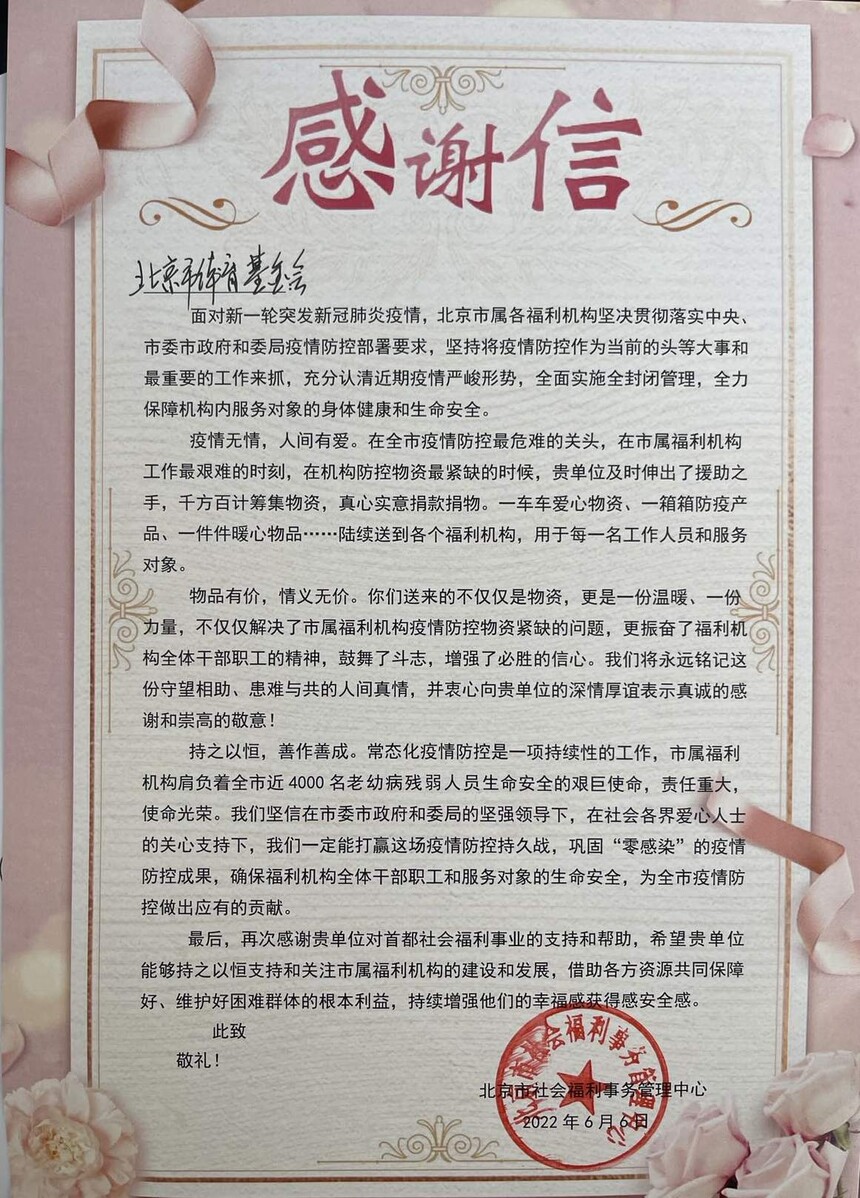 感谢信
北京市体育基金会
面对新一轮突发新冠肺炎疫情，北京市属各福利机构坚决贯彻落实中央、
市委市政府和委局疫情防控部署要求，坚持将疫情防控作为当前的头等大事和
最重要的工作来抓，充分认清近期疫情严峻形势，全面实施全封闭管理，全力
保障机构内服务对象的身体健康和生命安全。
疫情无情，人间有爱。在全市疫情防控最危难的关头，在市属福利机构
工作最艰难的时刻，在机构防控物资最紧缺的时候，贵单位及时伸出了援助之
手，千方百计筹集物资，真心实意捐款捐物。一车车爱心物资、一箱箱防疫产
品、一件件暖心物品……陆续送到各个福利机构，用于每一名工作人员和服务
对象。
物品有价，情义无价。你们送来的不仅仅是物资，更是一份温暖、一份
力量，不仅仅解决了市属福利机构疫情防控物资紧缺的问题，更振奋了福利机
构全体干部职工的精神，鼓舞了斗志，增强了必胜的信心。我们将永远铭记这
份守望相助、患难与共的人间真情，并衷心向贵单位的深情厚谊表示真诚的感
谢和崇高的敬意！
持之以恒，善作善成。常态化疫情防控是一项持续性的工作，市属福利
机构肩负着全市近4000名老幼病残弱人员生命安全的艰巨使命，责任重大，
使命光荣。我们坚信在市委市政府和委局的坚强领导下，在社会各界爱心人士
的关心支持下，我们一定能打赢这场疫情防控持久战，巩固“零感染”的疫情
防控成果，确保福利机构全体干部职工和服务对象的生命安全，为全市疫情防
控做出应有的贡献。
最后，再次感谢贵单位对首都社会福利事业的支持和帮助，希望贵单位
能够持之以恒支持和关注市属福利机构的建设和发展，借助各方资源共同保障
好、维护好困难群体的根本利益，持续增强他们的幸福感获得感安全感。
此致
敬礼！
北京市社会福利事务管理中心
2022年6月6日
北京市社会福利事务管理中心